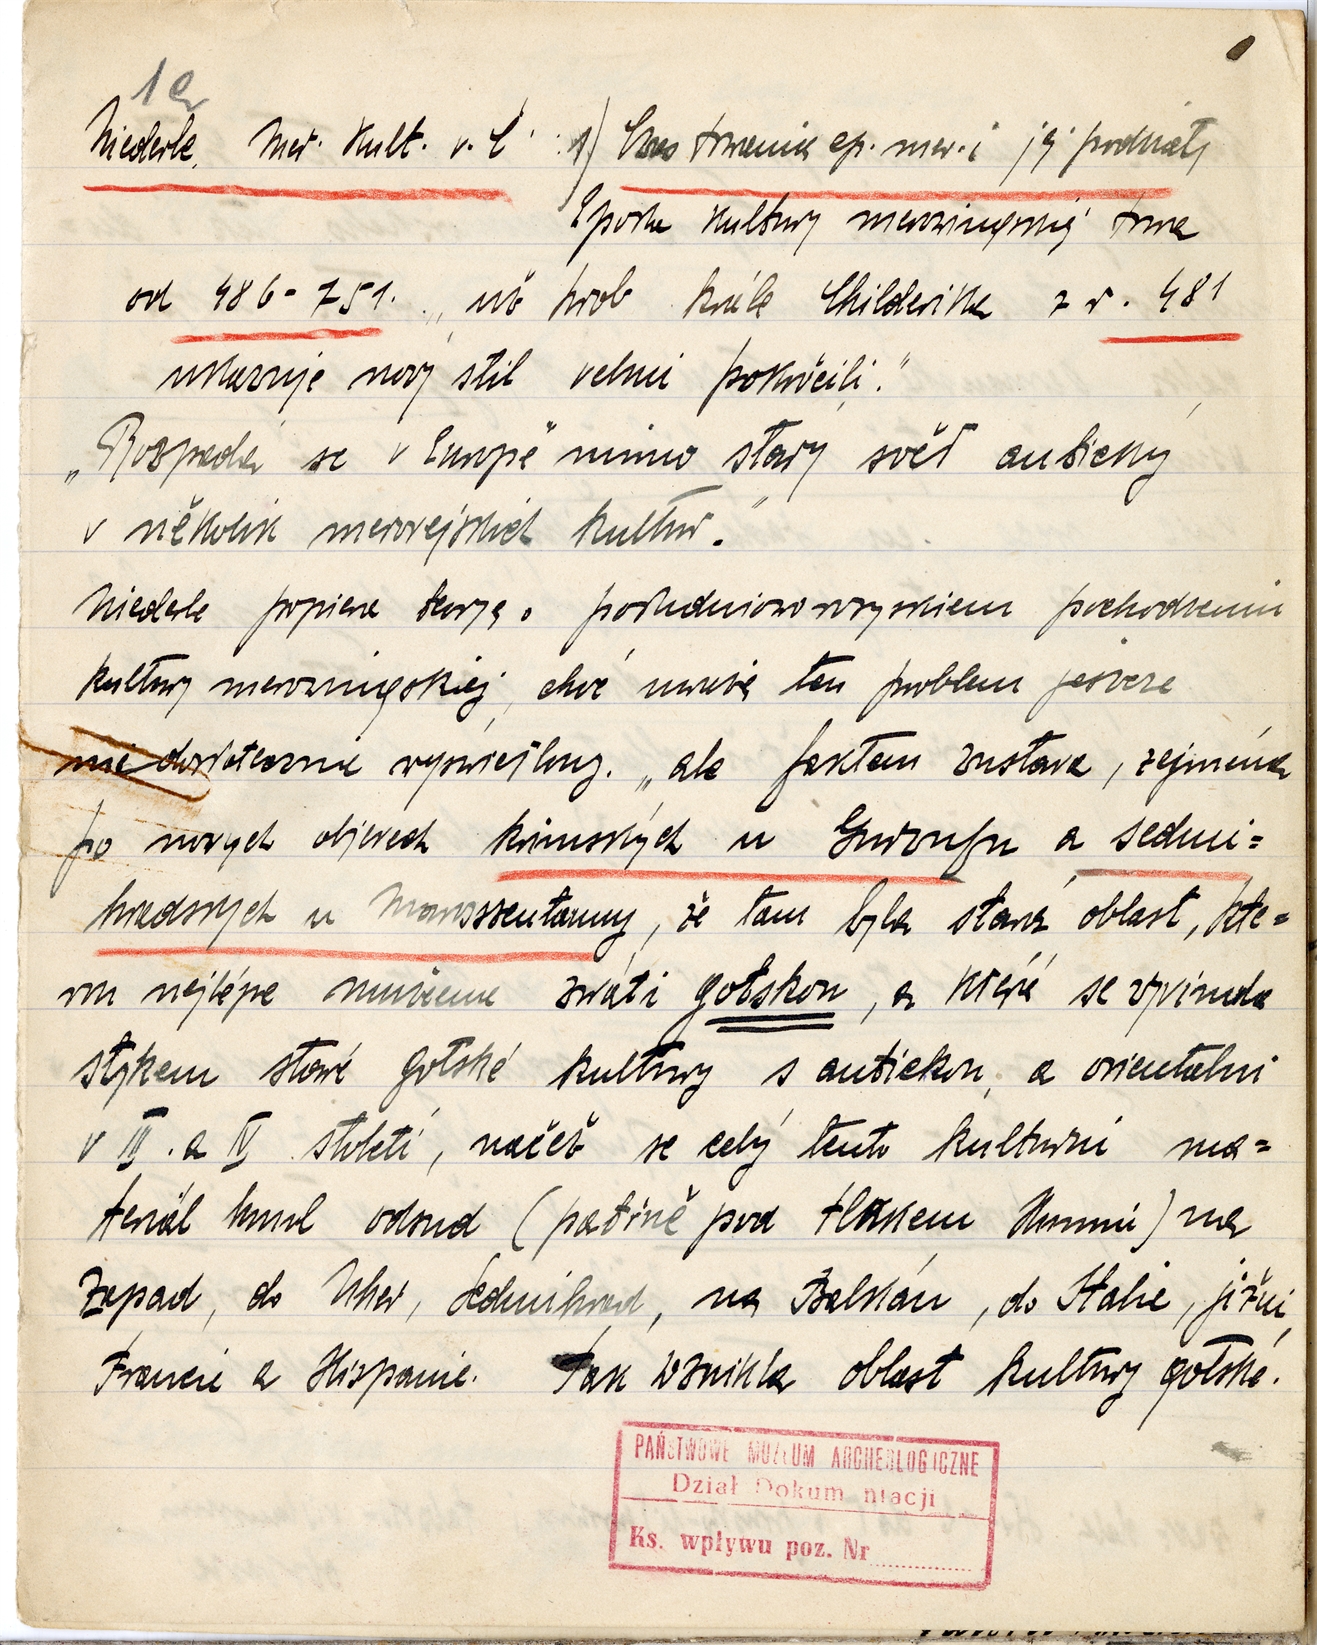 1a
Niederle, Mer. Kult. v. Č 1) Czas trwania ep. mer. i jej podział
Epoka kultury merowingskiej trwa
od 486-751. „ už hrob krále Childerika z r. 481
ukazuje nový stil velmi pokročilý."
„Rozpadá se v Europě mimo starý svět antický
v několik merovejských kultur."
Niederle popiera teorję o południoworosyjskiem pochodzeniu
kultury merowingskiej, choć uważa ten problem jeszcze
nie dostatecznie wyświetlony. „ale faktem zustava, zejména
po nových objevech krimských u Gurzufu a sedmi=
hradských u Marosszentanny, že tam byla stará oblast, kte=
rou nejlépe mužeme zváti gotskou, a která se vyvinula
stykem staré gotské kultury s antickou, a orientalni
v III. a IV století, načež se celý tento kulturni ma=
teriál hnul odsud (patrně pod tlakem Hunnů) na
Zapad, do Uher, Sedmihrad, na Balkán, do Italie, jižni
Francie a Hispanie. Tak vznikla oblast kultury gotské.
PAŃSTWOWE MUZEUM ARCHEOLOGICZNE
Dział Dokum ntacji
Ks. wpływu poz. Nr